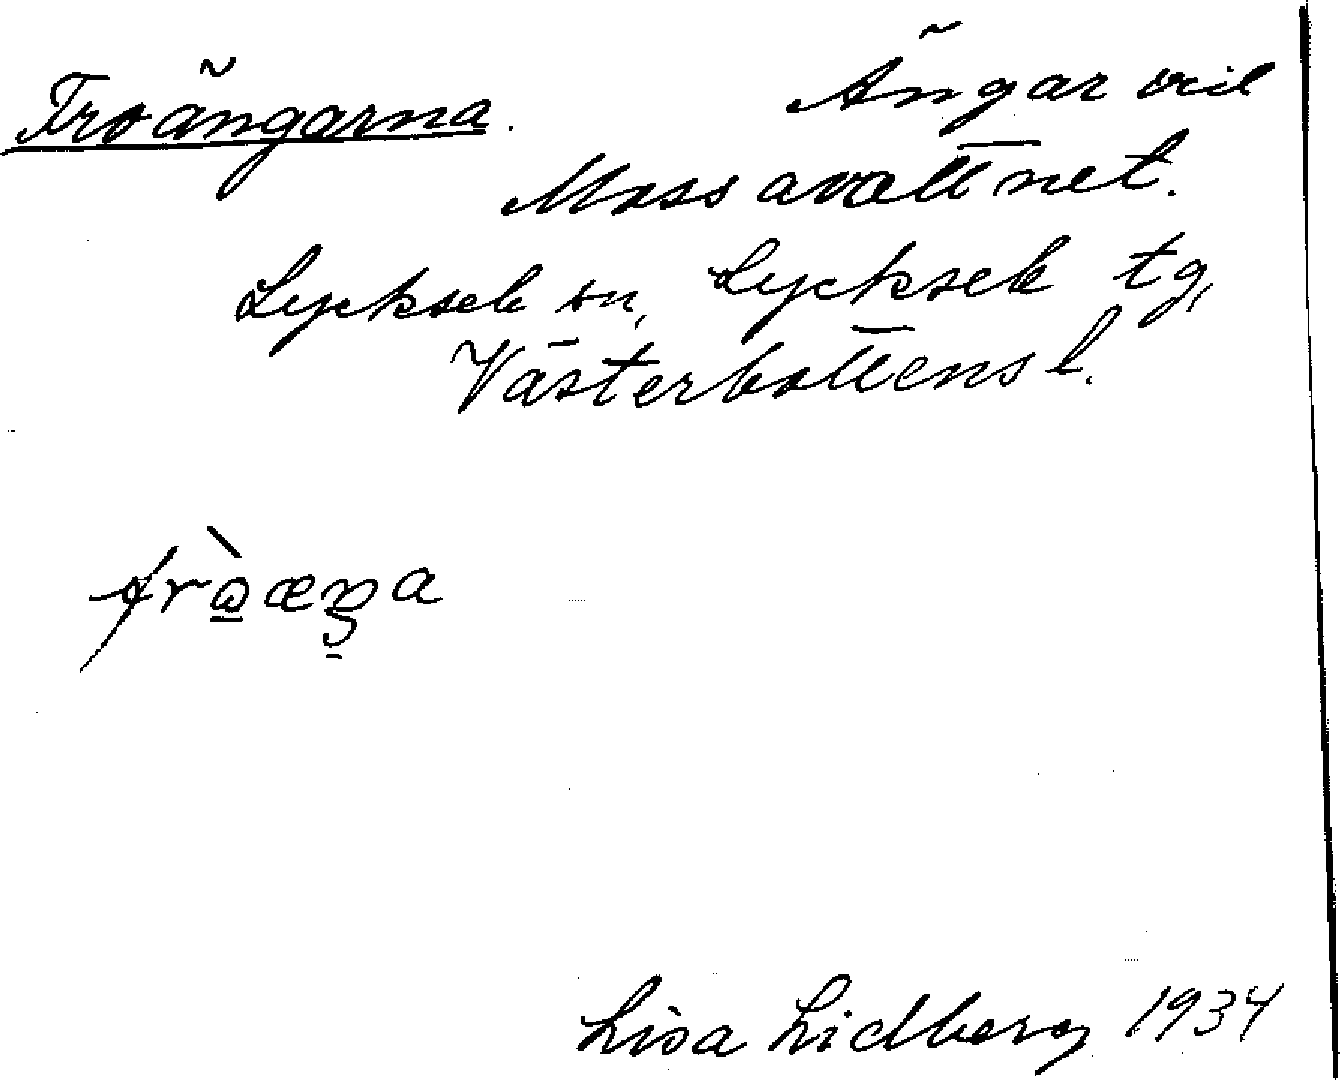 Troängarna. Ängar vid
Mossavattnet.
Lycksele sn, Lycksele tg,
Västerbottens l.
Lisa Lidberg 1934